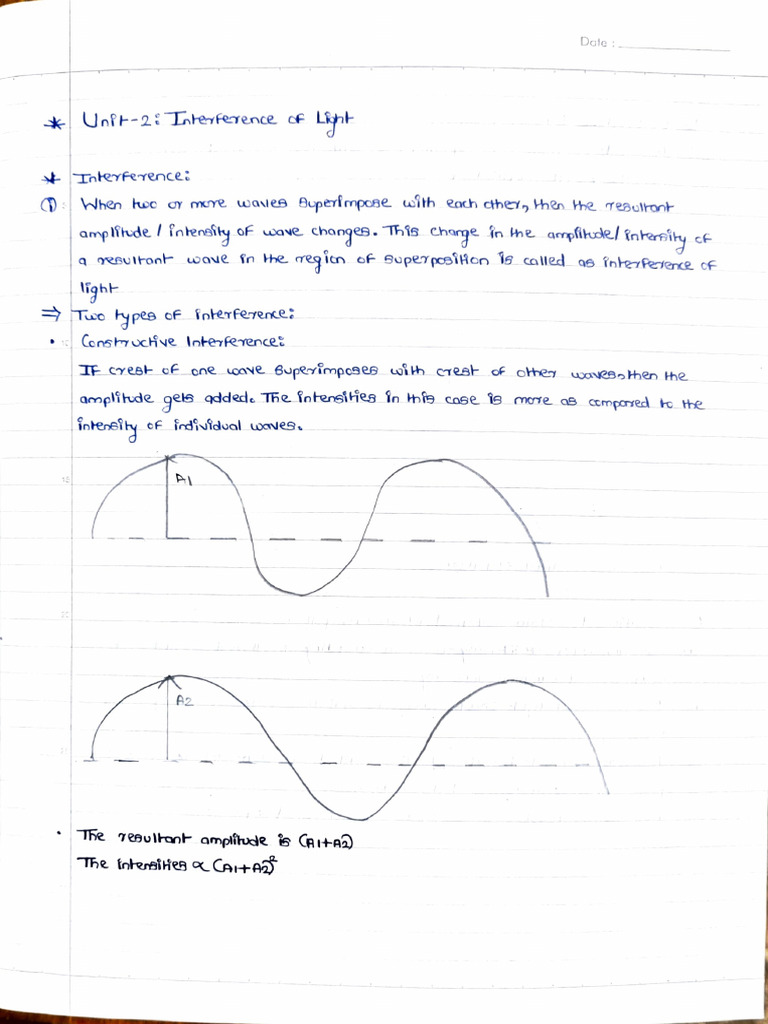 Date :
* Unit-2: Interference of Light
* Interference:
① When two or more waves superimpose with each other, then the resultant
amplitude / intensity of wave changes. This change in the amplitude / intensity of
a resultant wave in the region of superposition is called as interference of
light
⇒ Two types of interference:
• Constructive Interference:
If crest of one wave superimposes with crest of other waves, then the
amplitude gets added. The intensities in this case is more as compared to the
intensity of individual waves.
A1
A2
• The resultant amplitude is (A1+A2)
The intensities ∝ (A1+A2)²